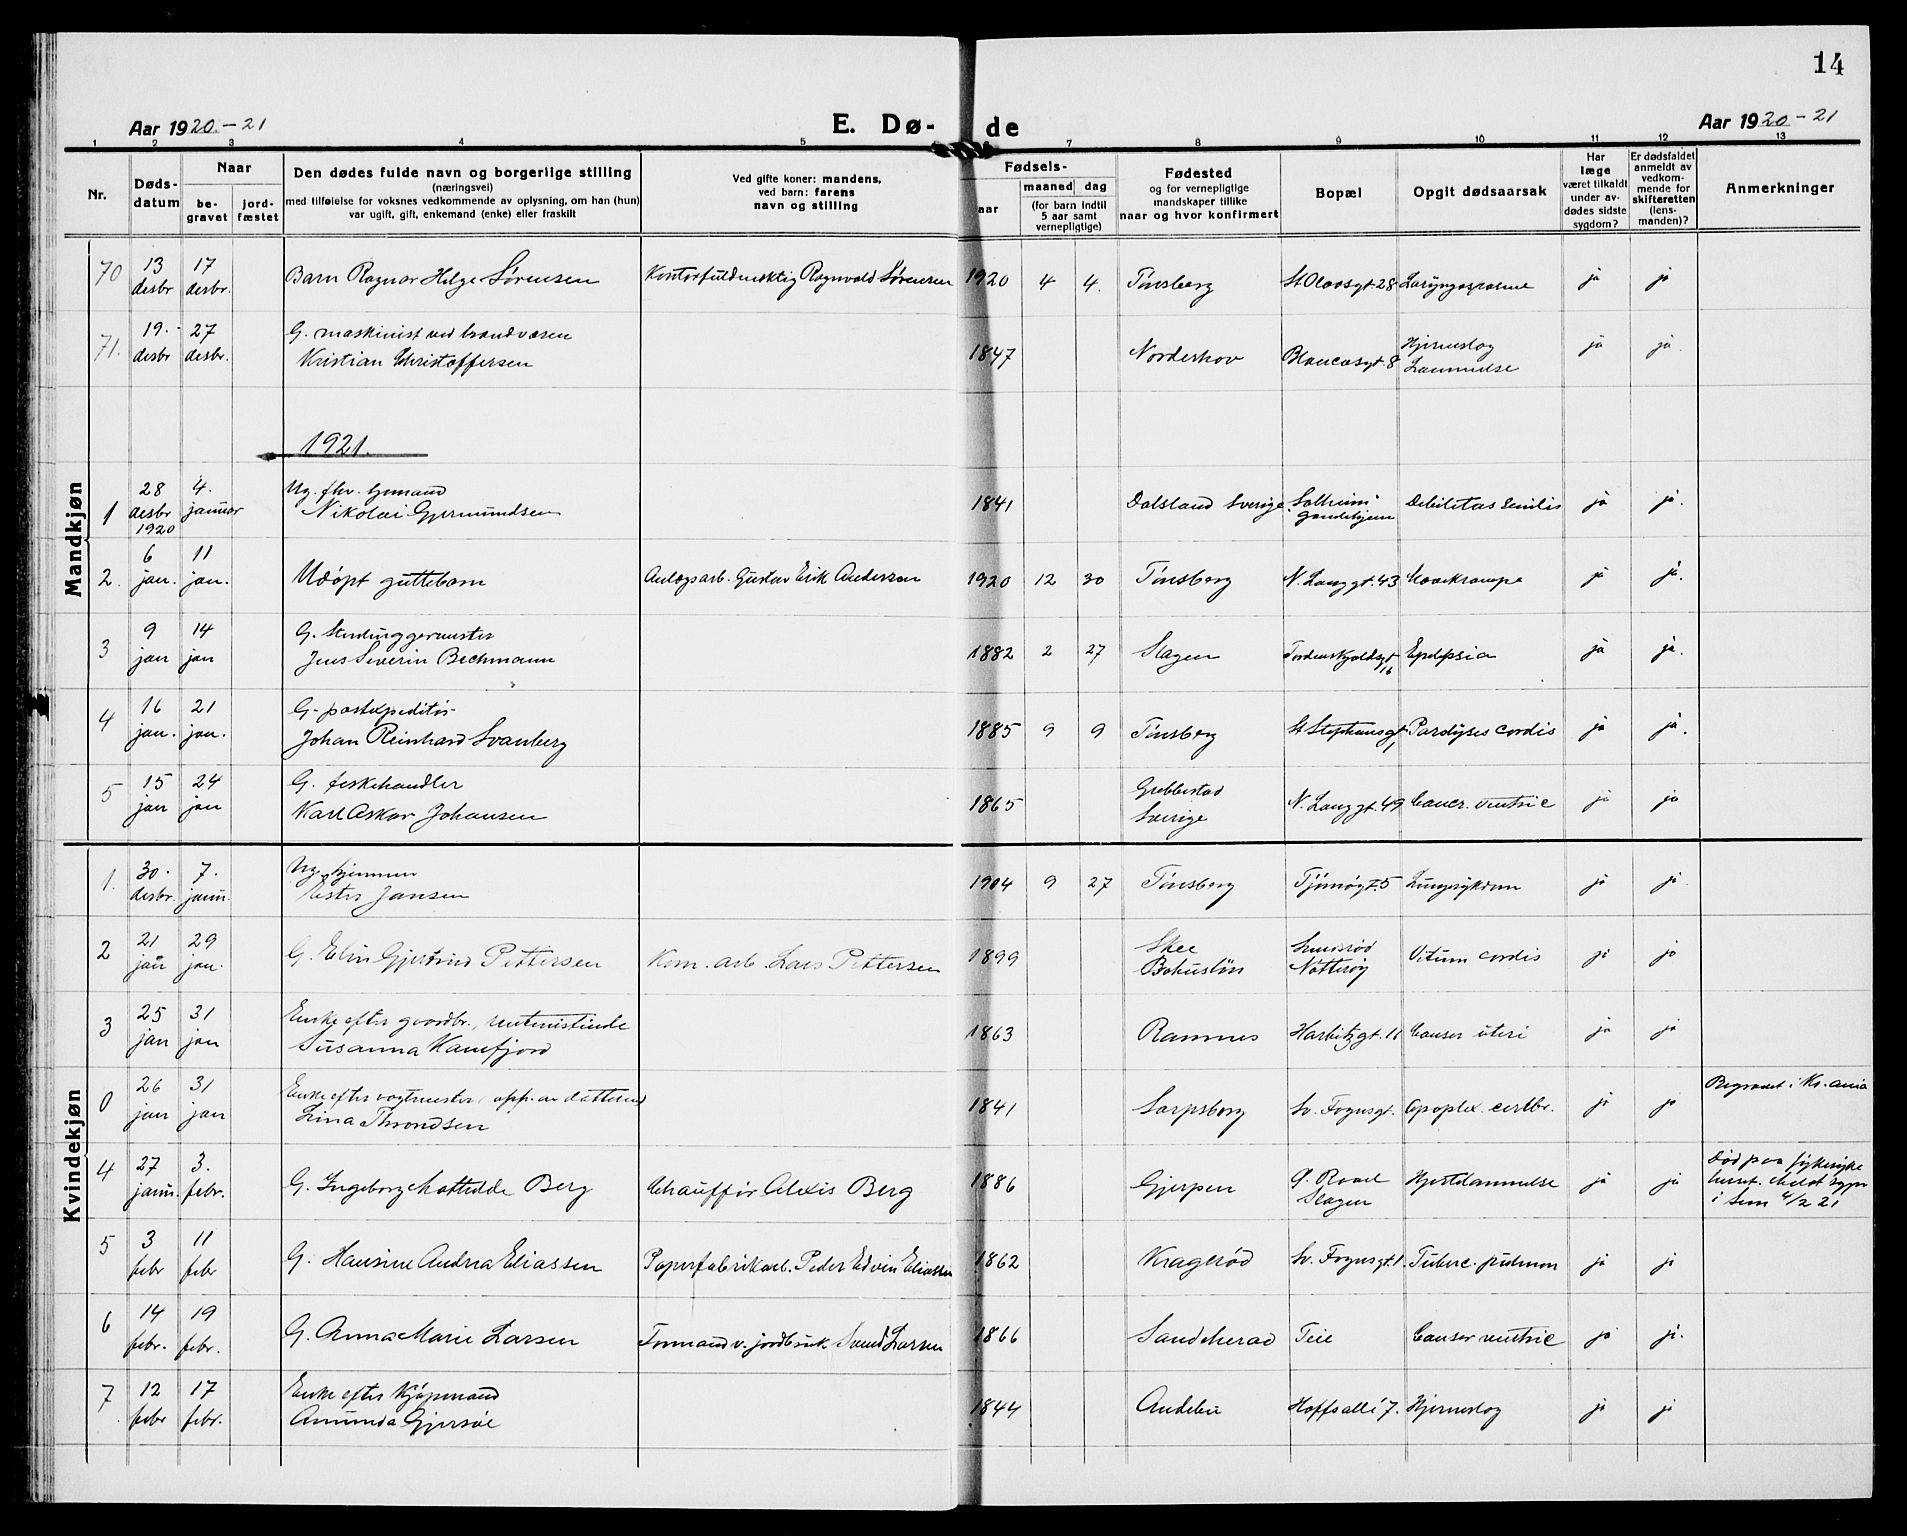 14
Aar 1920-21
E. Dø-de
Aar 1920-21
1 2 3 4 5 7 8 9 10 11 12 13
Nr.
Døds-
datum
Naar
be-
gravet
jord-
fæstet
Den dødes fulde navn og borgerlige stilling
(næringsvei)
med tilføielse for voksnes vedkommende av oplysning, om han (hun)
var ugift, gift, enkemand (enke) eller fraskilt
Ved gifte koner: mandens,
ved barn: farens
navn og stilling
Fødsels-
aar
maaned dag
(for barn indtil
5 aar samt
vernepligtige)
Fødested
og for vernepligtige
mandskaper tillike
naar og hvor konfirmert
Bopæl
Opgit dødsaarsak
Har
læge
været tilkaldt
under av-
dødes sidste
sygdom?
Er dødsfaldet
anmeldt av
vedkom-
mende for
skifteretten
(lens-
manden)?
Anmerkninger
Mandkjøn
70 13 desbr 17 desbr. Barn Ragnar Helge Sørensen Kontorfuldmæktig Ragnvald Sørensen 1920 4 4. Tønsberg St Olavsgt. 28 Laryngospasme ja ja
71. 19. desbr 27 desbr. G. maskinist ved brandvæsen
Kristian Christoffersen 1847 Norderhov 8 Hjerneslag
Lammelse ja ja.
1921.
1 28 desbr 1920 4. januar Ug. fhv. sjømand
Nikolai Gjermundsen 1841 Dalsland Sverige Solheim
gamlehjem Debilitas senilis ja ja.
2. 6 jan. 11 jan. Udøpt guttebarn Anlægsarb. Gustav Erik Andersson 1920 12 30 Tønsberg N. Langgt. 43 ja ja.
3 9 jan 14 jan G.
Jens Severin Bechmann 1882 2 27 Slagen Tordenskjoldsgt
16 Epelpsia ja ja.
4 16 jan. 21 jan. G. postexpeditør
Johan Reinhard Svanberg 1885 9 9 Tønsberg St Stephansgt
1 Paralyses cordis ja ja.
5 15 jan 24 jan G. fiskehandler
Karl Oskar Johansen 1865 Grebbestad
Sverige N. Langgt. 49 Cancr. ventric ja ja
Kvindekjøn
1. 30. desbr. 7. janu. Ug. hjemme
Ester Jansen 1904 9 27 Tønsberg Tjømøgt. 5 Lungesykdom ja ja
2 21 jan 29 jan. G. Elin Gjertrud Pettersen Kom. arb. Lars Pettersen 1899 Skee
Bohuslän Smidsrød
Nøtterøy Vitium cordis ja ja
3 25 jan 31 jan Enke efter gaardbr., rentenistinde
Susanna Kanefjord 1863 Ramnes Harbitzgt. 11 Canser uteri ja ja
0 26 jan 31 jan Enke efter vogtmester, opp. av datteren
Lina Throndsen 1841 Sarpsborg Sv. Foynsgt. Apoplex. cerebr. ja ja Begravet i Kr.ania
4 27 janu. 3. febr. G. Ingeborg Mathilde Berg Chauffør Alexis Berg 1886 Gjerpen
Slagen Hjertelammelse ja ja Død paa sykehuset.
i Sem 4/2 21
5 3 febr 11 febr G. Hansine Andrea Eliassen Papirfabrikarb. Peder Edvin Eliassen 1862 Kragerød Sv. Foynsgt. 1. Tuberc. pulmon ja ja
6 14 febr. 19 febr. G. Anna Marie Larsen Formand v. jordbruk Svend Larsen 1866 Sandeherad Teie Canser ventric ja ja.
7 12 febr 17 febr. Enke efter kjøpmand
Amunda Gjersøe 1844 Andebu Hoffsalle 7. Hjerneslag ja ja